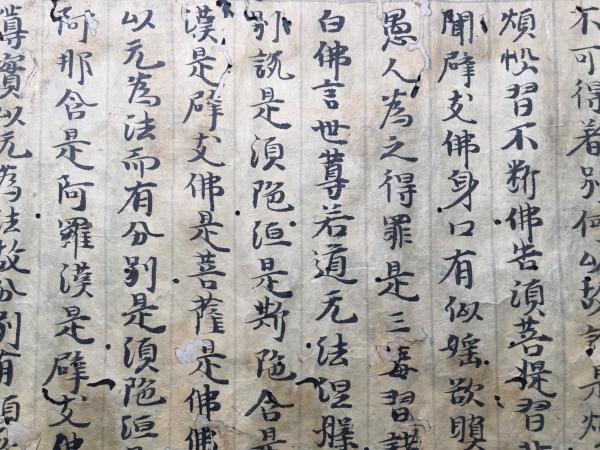 不可得者別何以故是煩
煩惱習不斷佛告須菩提習非
聞辟支佛身口有似婬欲瞋
愚人為之得罪是三毒習諸
白佛言世尊若道无法涅槃
別說是須陁洹是斯陁含是
漢是辟支佛是菩薩是佛佛
以无為法而有分別是須陁洹是
阿那含是阿羅漢是辟支佛
尊實以无為法故分別有須